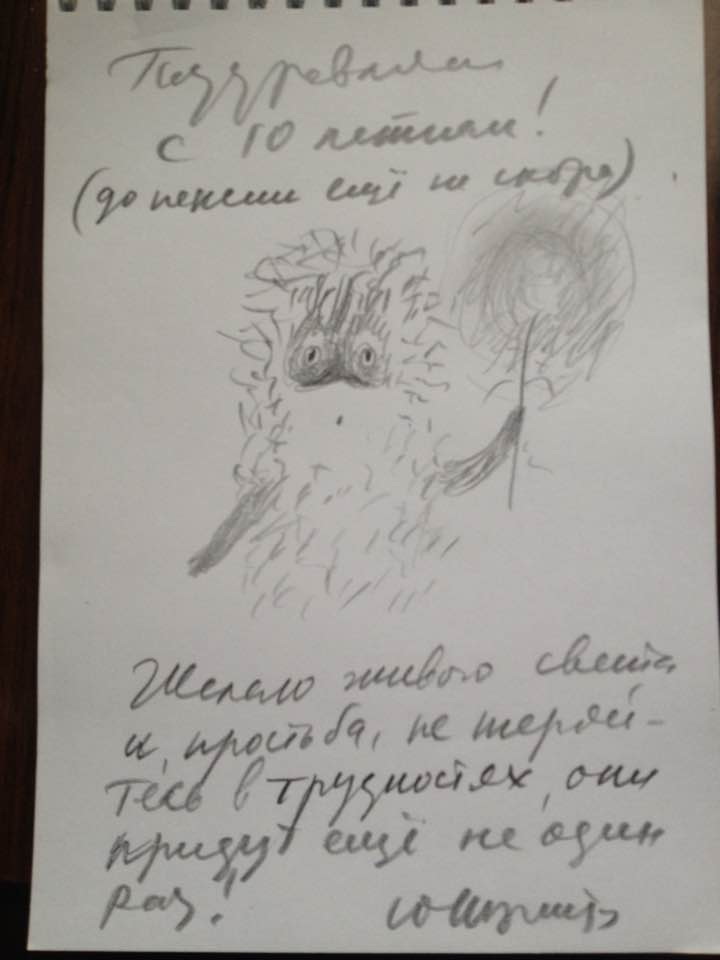 Поздравляем
с 10 летием!
(до пенсии ещё не скоро)
Желаю живого света
и, простьба, не теряй-
тесь в трудностях, они
придут ещё не один
раз!